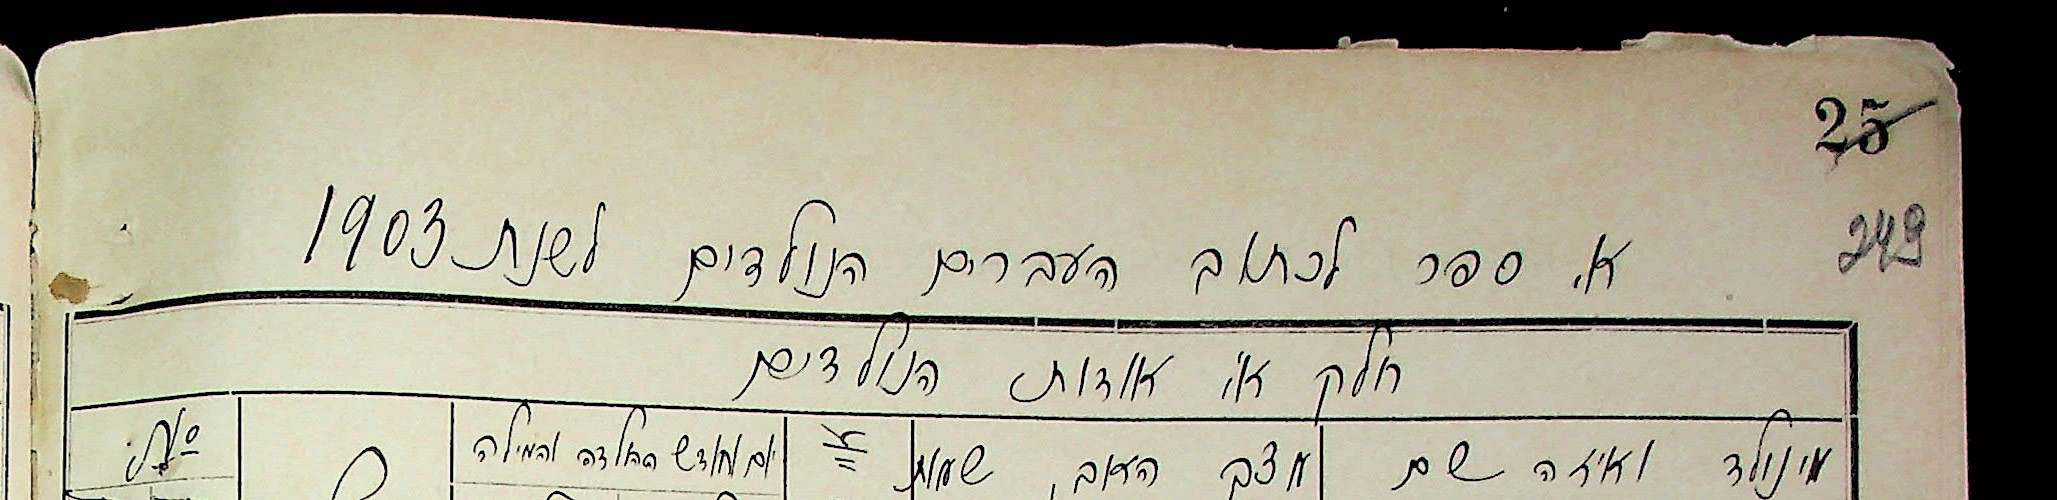 25
249
א. ספר לכתוב העברים הנולדים לשנת 1903
חלק א׳ אודות הנולדים
מי נולד ואיזה שם מצב האב, שמות יום וחודש ההולדה והמילה №